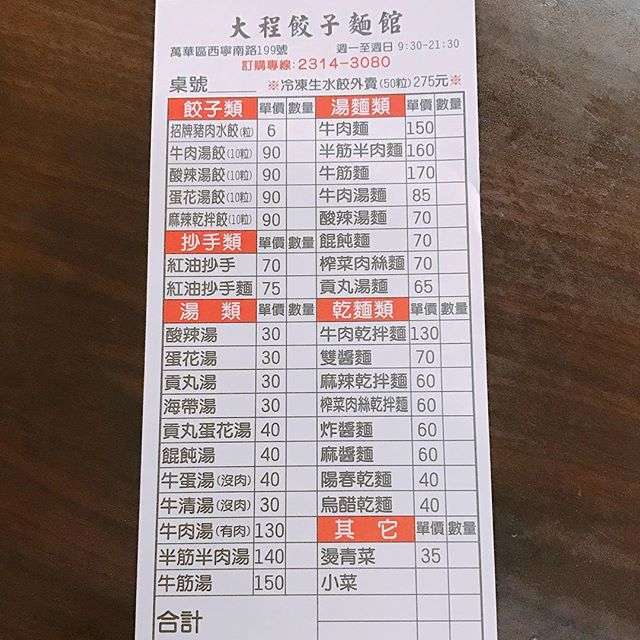 大程餃子麵館
萬華區西寧南路199號 週一至週日 9:30-21:30
訂購專線: 2314-3080
桌號 ※冷凍生水餃外賣(50粒)275元※
餃子類 單價 數量 湯麵類 單價 數量
招牌豬肉水餃(粒) 6 牛肉麵 150
牛肉湯餃(10粒) 90 半筋半肉麵 160
酸辣湯餃(10粒) 90 牛筋麵 170
蛋花湯餃(10粒) 90 牛肉湯麵 85
麻辣乾拌餃(10粒) 90 酸辣湯麵 70
抄手類 單價 數量 餛飩麵 70
紅油抄手 70 榨菜肉絲麵 70
紅油抄手麵 75 貢丸湯麵 65
湯 類 單價 數量 乾麵類 單價 數量
酸辣湯 30 牛肉乾拌麵 130
蛋花湯 30 雙醬麵 70
貢丸湯 30 麻辣乾拌麵 60
海帶湯 30 榨菜肉絲乾拌麵 60
貢丸蛋花湯 40 炸醬麵 60
餛飩湯 40 麻醬麵 60
牛蛋湯(沒肉) 40 陽春乾麵 40
牛清湯(沒肉) 30 烏醋乾麵 40
牛肉湯(有肉) 130 其 它 單價 數量
半筋半肉湯 140 燙青菜 35
牛筋湯 150 小菜
合計